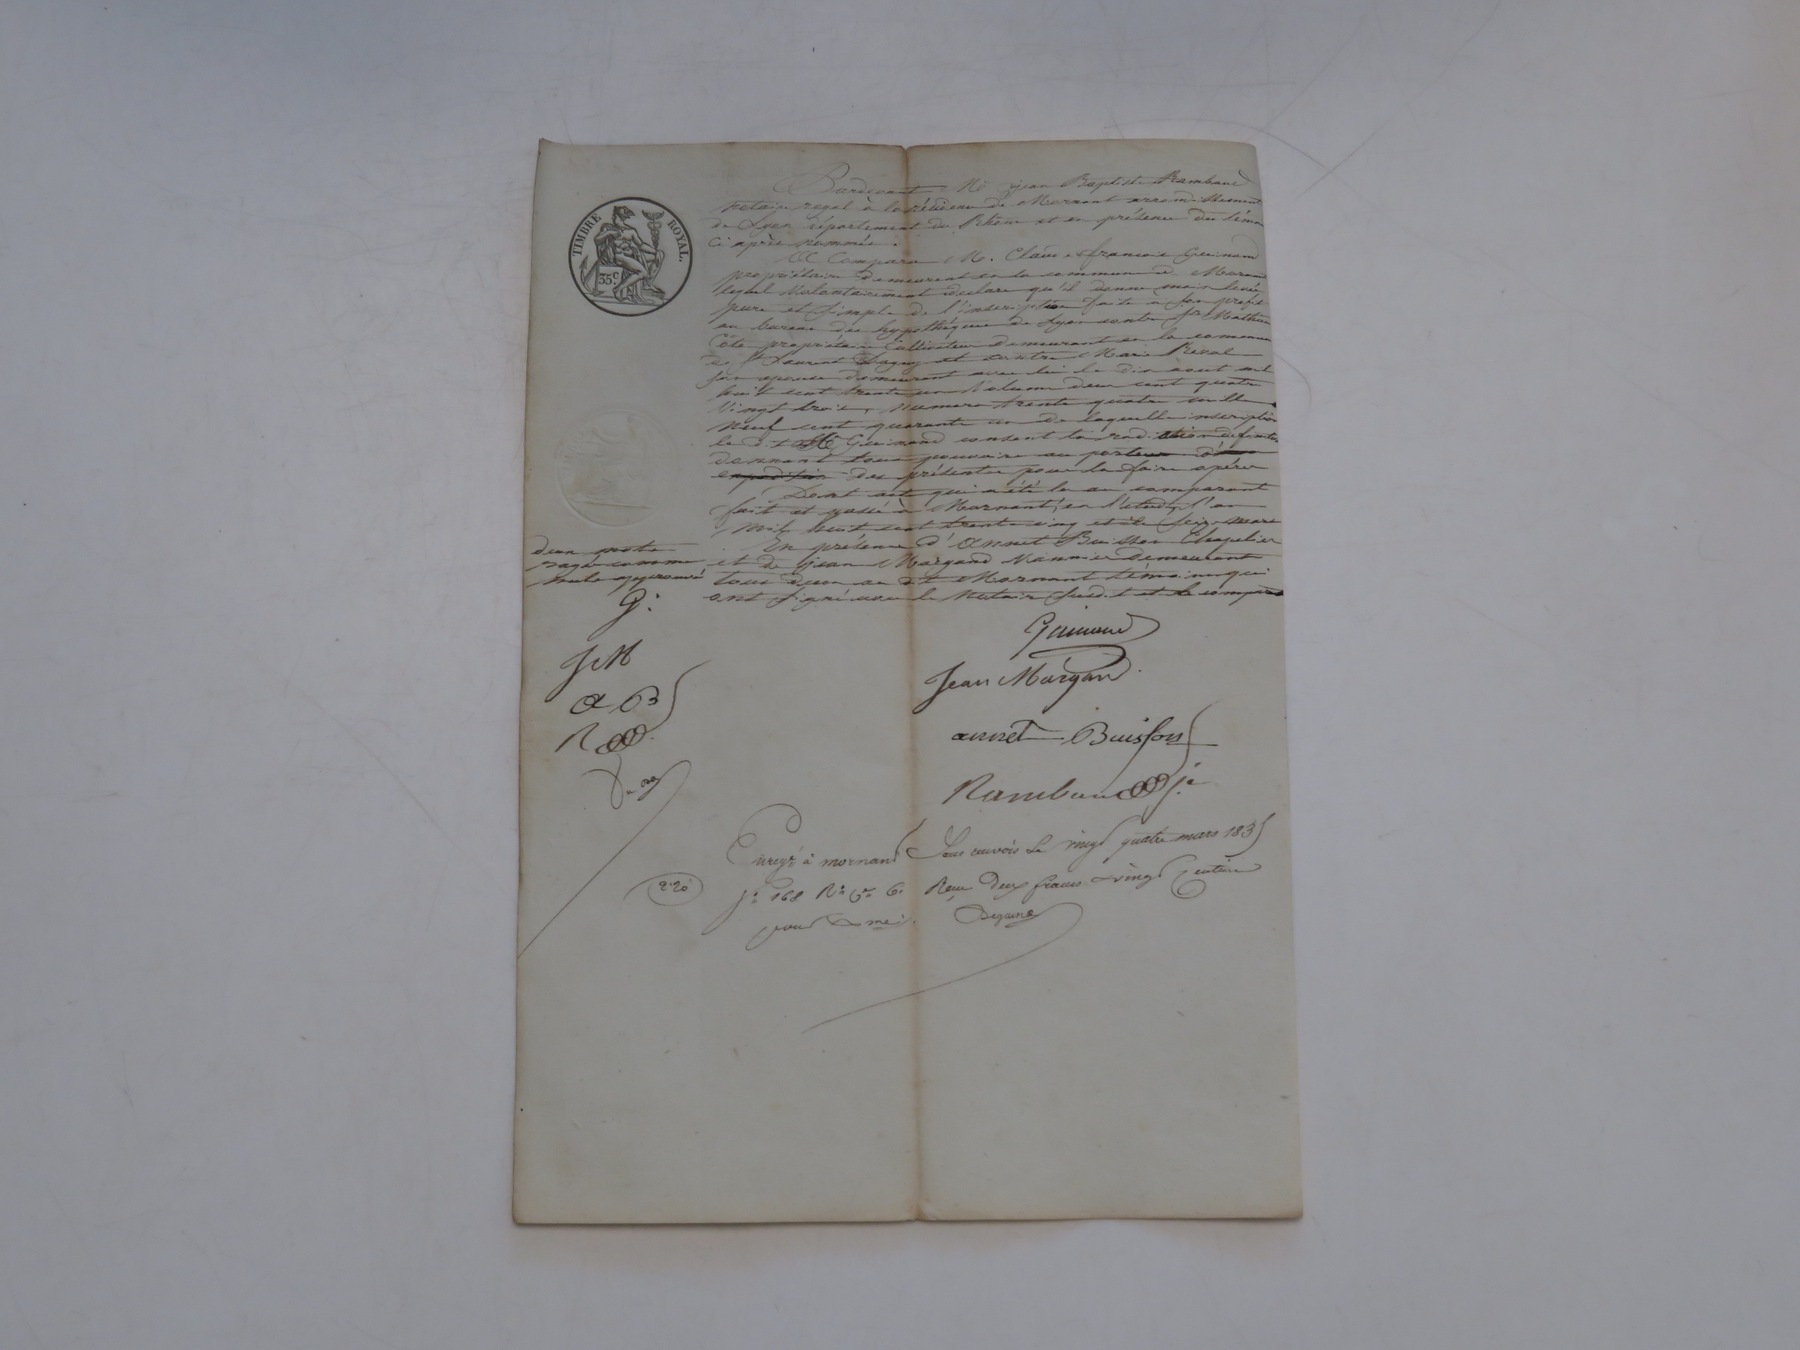 TIMBRE ROYAL.
35.c
Pardevant Me jean Baptiste Rambaud
notaire royal à la résidence de Mornant arrondissement
de Lyon département du Rhône et en présence des témoins
ci après nommés.
A Comparu M. Claude francois Guinand
propriétaire demeurant en la commune de Mornant
lequel Volontairement déclare qu'il donne main levée
pure et simple de l'inscription faite a son profit
au bureau des hypothéques de Lyon contre Sr Mathieu
Côte propriétaire Cultivateur demeurant en la commune
de St Laurent Dagny et contre Marie
son epouse demeurant avec lui le dix aout mil
huit cent trente un Volume deux cent quatre
Vingt trois, Numero trente quatre mille
Neuf cent quarante un de laquelle inscription
le dit Mr Guinand consent la radiation définitive
donnant tous pouvoirs au porteur
expedition des présentes pour la faire opérer
Dont acte qui a été lu au comparant
fait et passé à Mornant, en l'étude, l'an
Mil huit cent trente cinq et le seize mars
En présence d'annet Buisson Chapelier
et de jean Margand Vannier Demeurant
tous deux au dit Mornant témoins qui
ont signé avec le Notaire susdit et le comparant
deux mots
rayés comme
nuls approuvé
G.
J M
a B
R
Guinand
Jean Margand
annet Buisson
Rambaud
Enregé à mornant sans renvois le vingt quatre mars 1835
fo 168 Ro Ce 6. Reçu deux francs vingt centimes
2.20